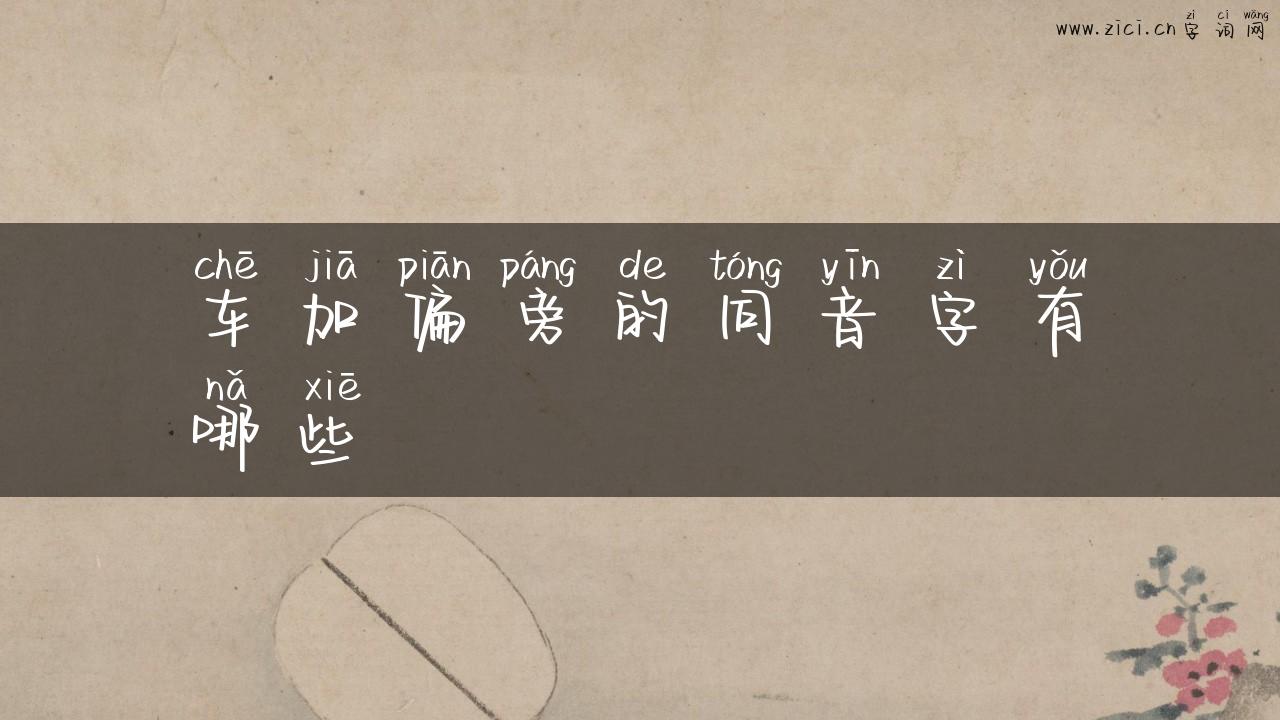 zì cí wǎng
www.zici.cn 字词网
chē jiā piān páng de tóng yīn zì yǒu
车加偏旁的同音字有
nǎ xiē
哪些